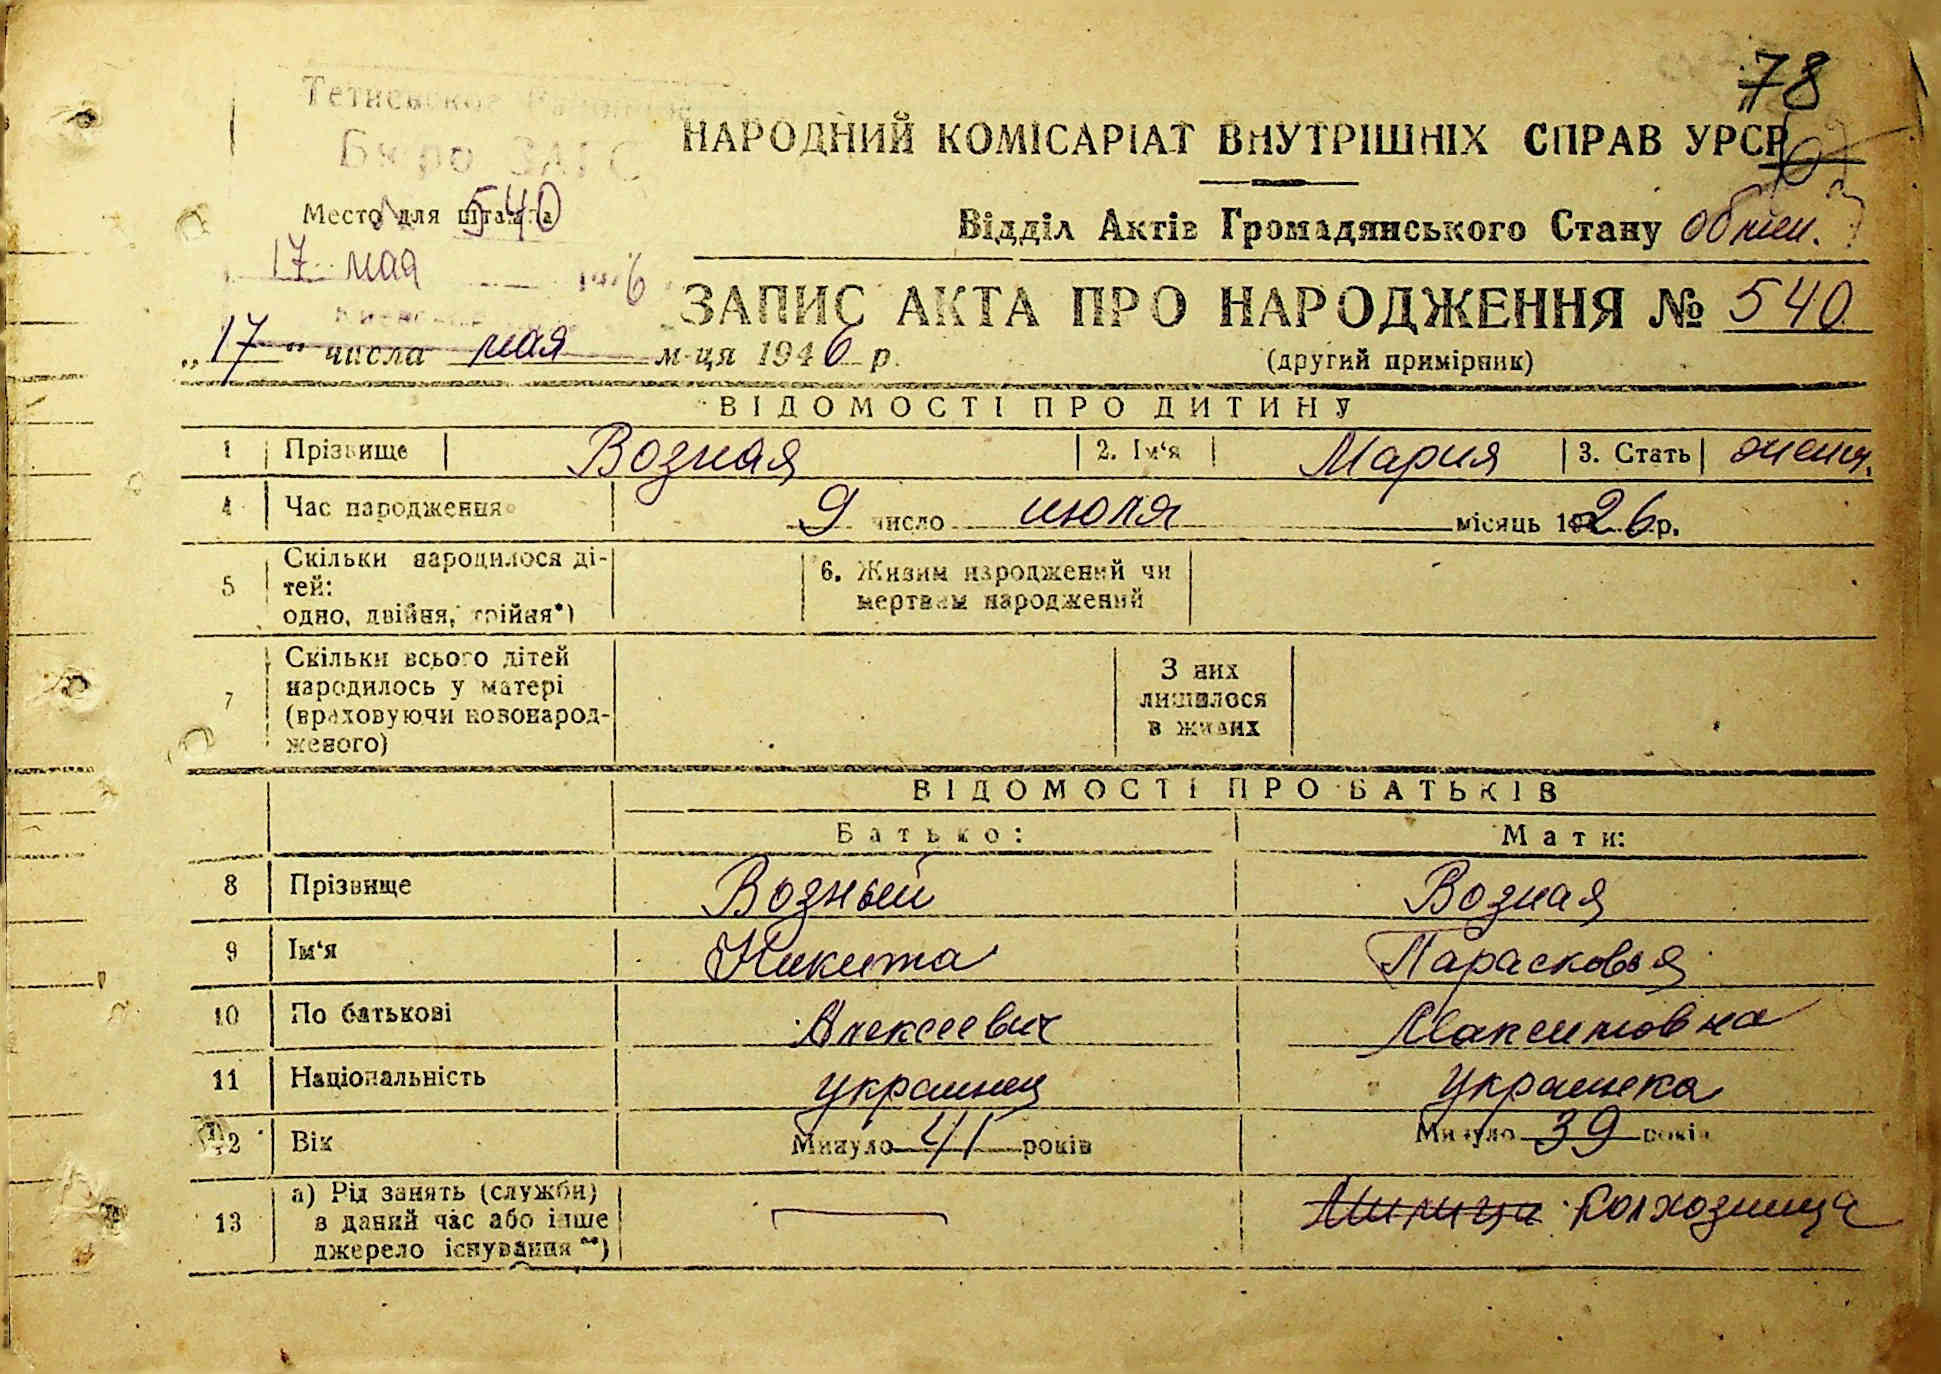 78
Тетиевское
Бюро ЗАГС
НАРОДНИЙ КОМІСАРІАТ ВНУТРІШНІХ СПРАВ УРСР
Место для штампа 540
Відділ Актів Громадянського Стану
17 мая 6
ЗАПИС АКТА ПРО НАРОДЖЕННЯ № 540
„17“ числа мая м-ця 1946 р.
(другий примірник)
ВІДОМОСТІ ПРО ДИТИНУ
1 Прізвище Возная 2. Ім'я Мария 3. Стать
4 Час народження 9 число июля місяць 1926 р.
5 Скільки народилося ді-
тей:
одно, двійня, трійня*)
6. Живим народжений чи
мертвим народжений
7 Скільки всього дітей
народилось у матері
(враховуючи новонарод-
женого)
З них
лишилося
в живих
ВІДОМОСТІ ПРО БАТЬКІВ
Батько: Мати:
8 Прізвище Возный Возная
9 Ім'я Никита Парасковья
10 По батькові Алексеевич Максимовна
11 Національність украинец украинка
12 Вік Минуло 41 років Минуло 39 років
13 а) Рід занять (служби)
в даний час або інше
джерело існування **)
колхозница